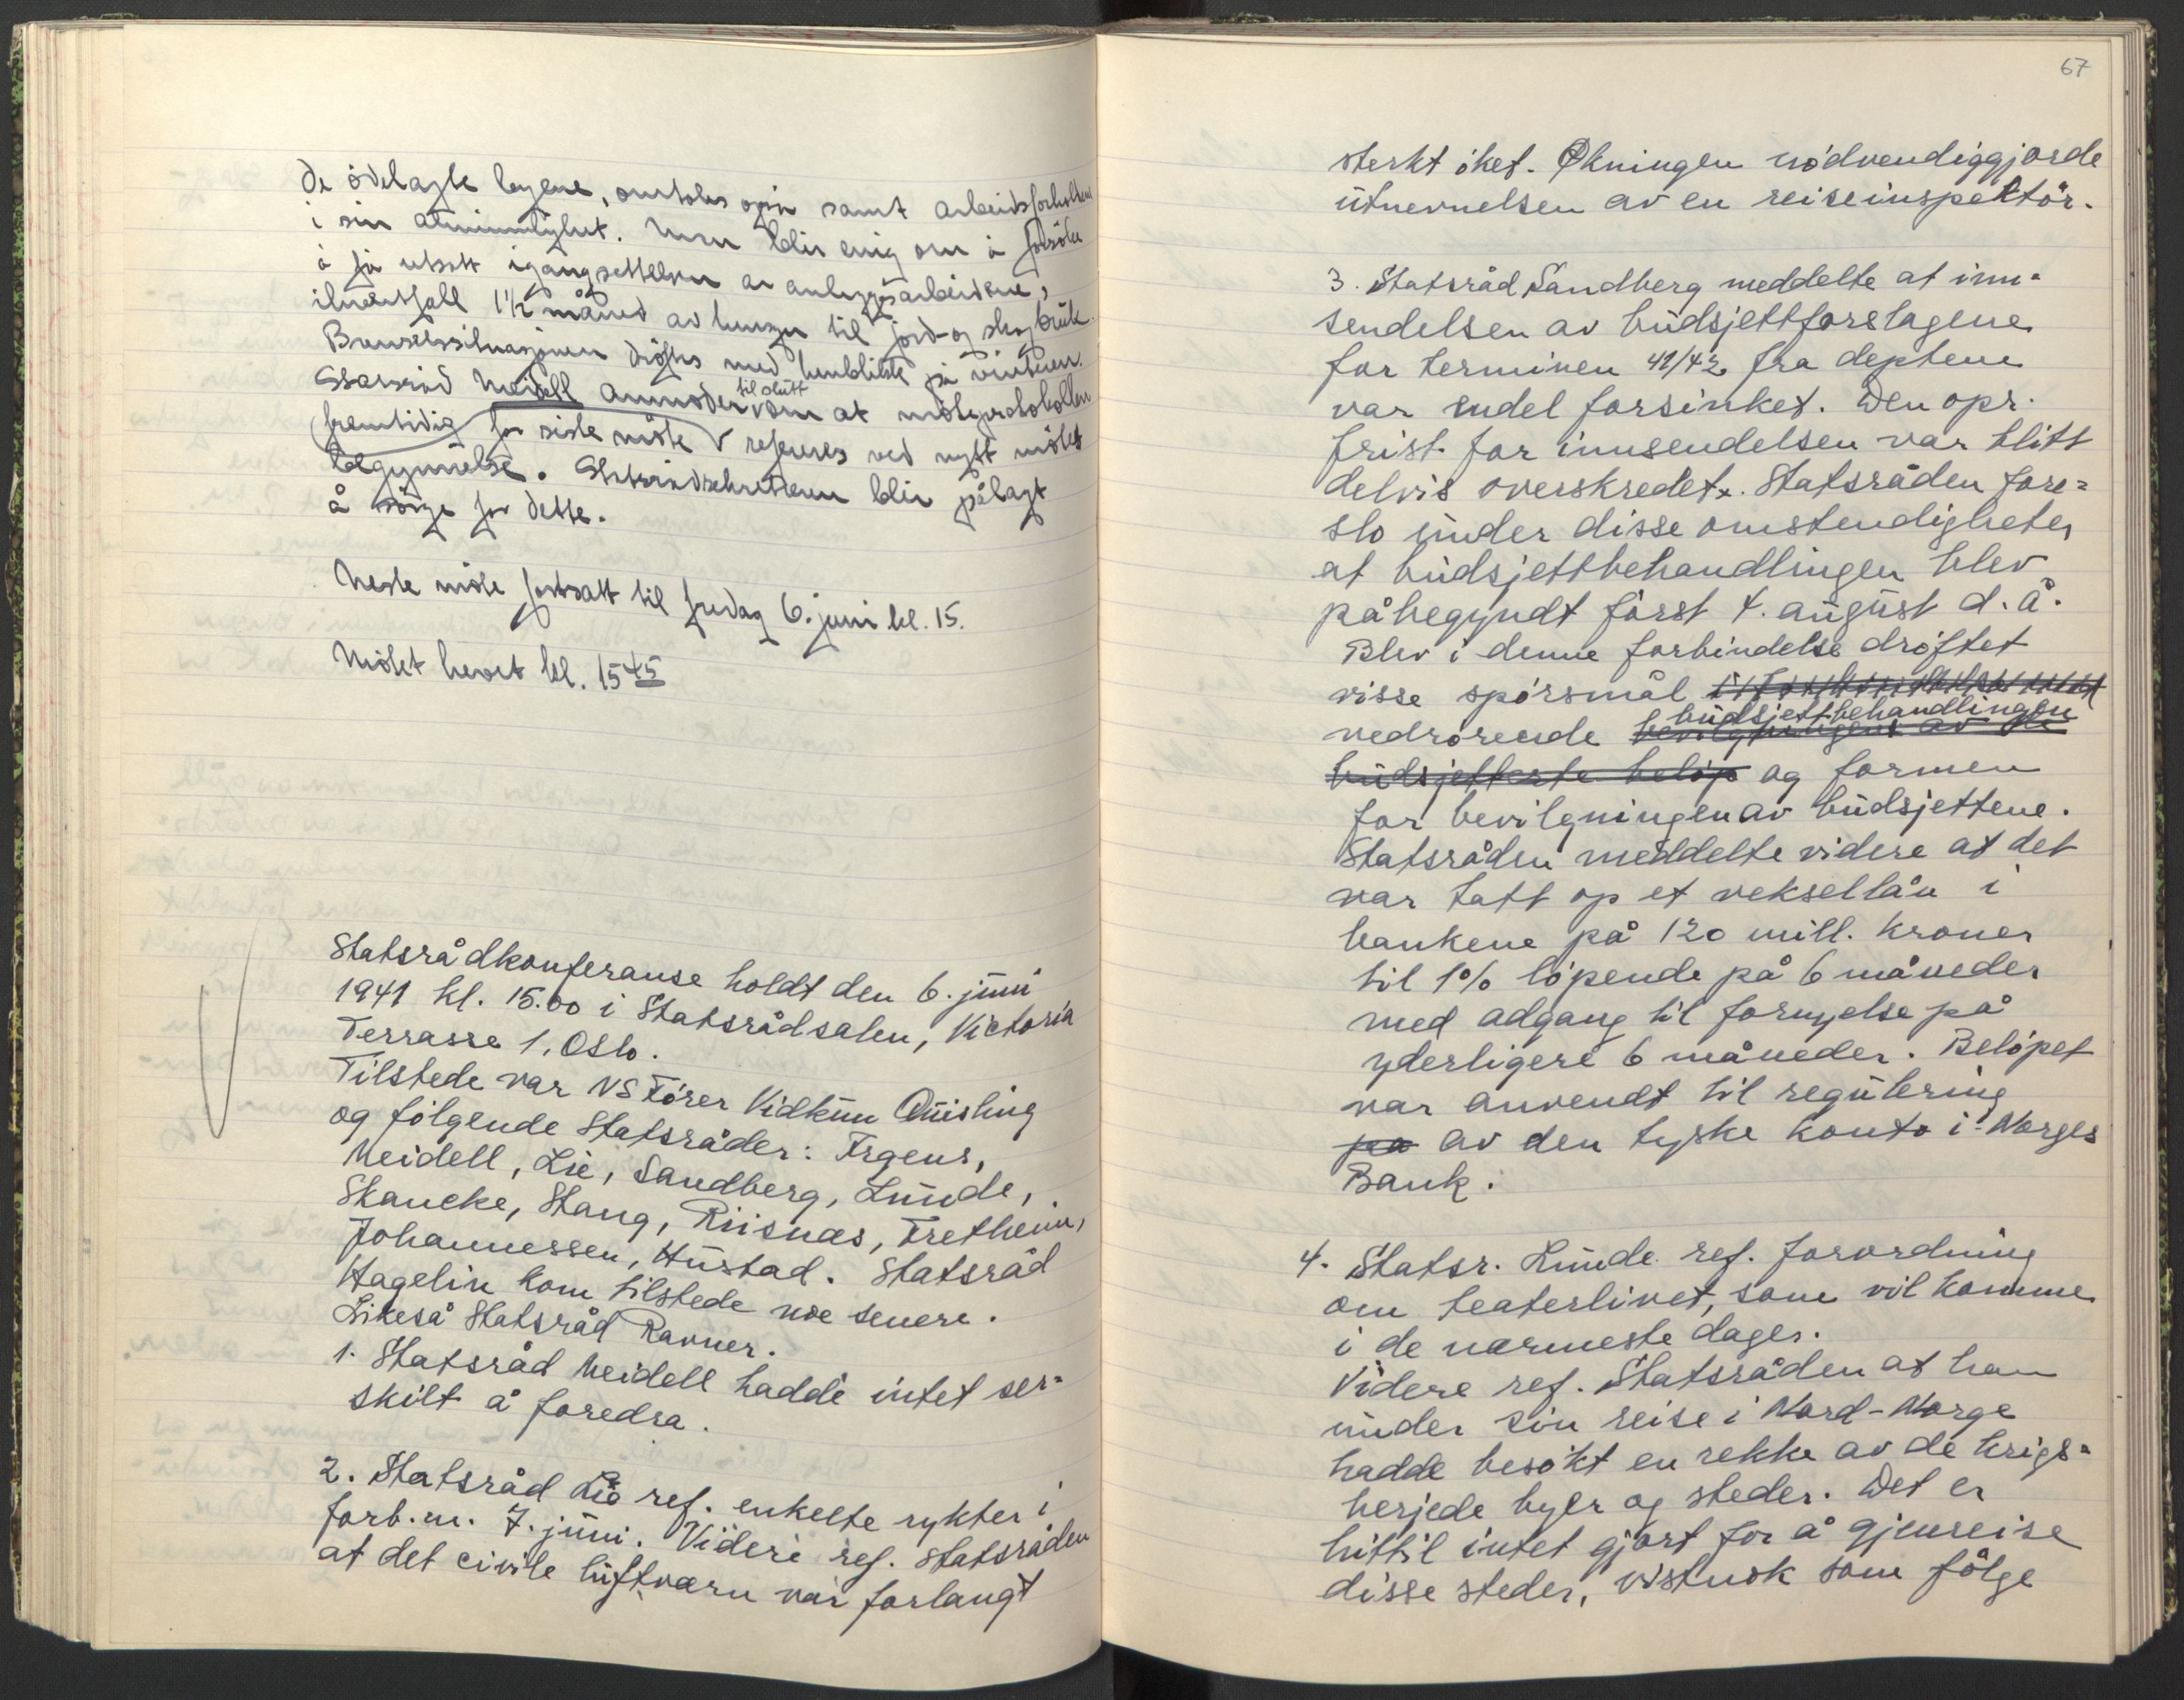 de ödelagte byene, omtales også samt arbeidsforholdene
i sin almindelighet. Man blir enig om å forsöke
å få utsatt igangsettelsen av anleggsarbeidene,
ihvertfall 1½ måned av hensyn til jord- og skogbruk.
Brenselssituasjonen dröftes med henblikk på vinteren.
Statsråd Meidell anmoder til slutt om at möteprotokollen
fremtidig for siste möte refereres ved nytt mötes
begynnelse. Statsrådsekretæren blir pålagt
å sörge for dette.
Neste möte fastsatt til fredag 6. juni kl. 15.
Mötet hevet kl. 15 45
Statsrådkonferanse holdt den 6. juni
1941 kl. 15.00 i Statsrådsalen, Victoria
Terrasse 1, Oslo.
Tilstede var NS Förer Vidkun Quisling
og fölgende Statsråder: Irgens,
Meidell, Lie, Sandberg, Lunde,
Skancke, Stang, Riisnæs, Fretheim,
Johannessen, Hustad. Statsråd
Hagelin kom tilstede noe senere.
Likeså Statsråd Ravner.
1. Statsråd Meidell hadde intet ser-
skilt å foredra.
2. Statsråd Lie ref. enkelte rykter i
forb. m. 7. juni. Videre ref. statsråden
at det civile luftvern var forlangt
67
sterkt öket. Økningen nödvendiggjorde
utnevnelsen av en reiseinspektör.
3. Statsråd Sandberg meddelte at inn-
sendelsen av budsjettforslagene
for terminen 41/42 fra deptene
var endel forsinket. Den opr.
frist for innsendelsen var blitt
delvis overskredet. Statsråden fore-
slo under disse omstendigheter
at budsjettbehandlingen blev
påbegyndt först 1. august d. å.
Blev i denne forbindelse dröftet
visse spörsmål
budsjettbehandlingen
vedrörende bevilgningene av de
budsjetterte belöp og formen
for bevilgningen av budsjettene.
Statsråden meddelte videre at det
var tatt op et veksellån i
bankene på 120 mill. kroner
til 1% löpende på 6 måneder
med adgang til fornyelse på
yderligere 6 måneder. Belöpet
var anvendt til regulering
på av den tyske konto i Norges
Bank.
4. Statsr. Lunde ref. forordning
om teaterlivet, som vil komme
i de nærmeste dager.
Videre ref. Statsråden at han
under sin reise i Nord-Norge
hadde besökt en rekke av de krigs-
herjede byer og steder. Det er
hittil intet gjort for å gjenreise
disse steder, vistnok som fölge